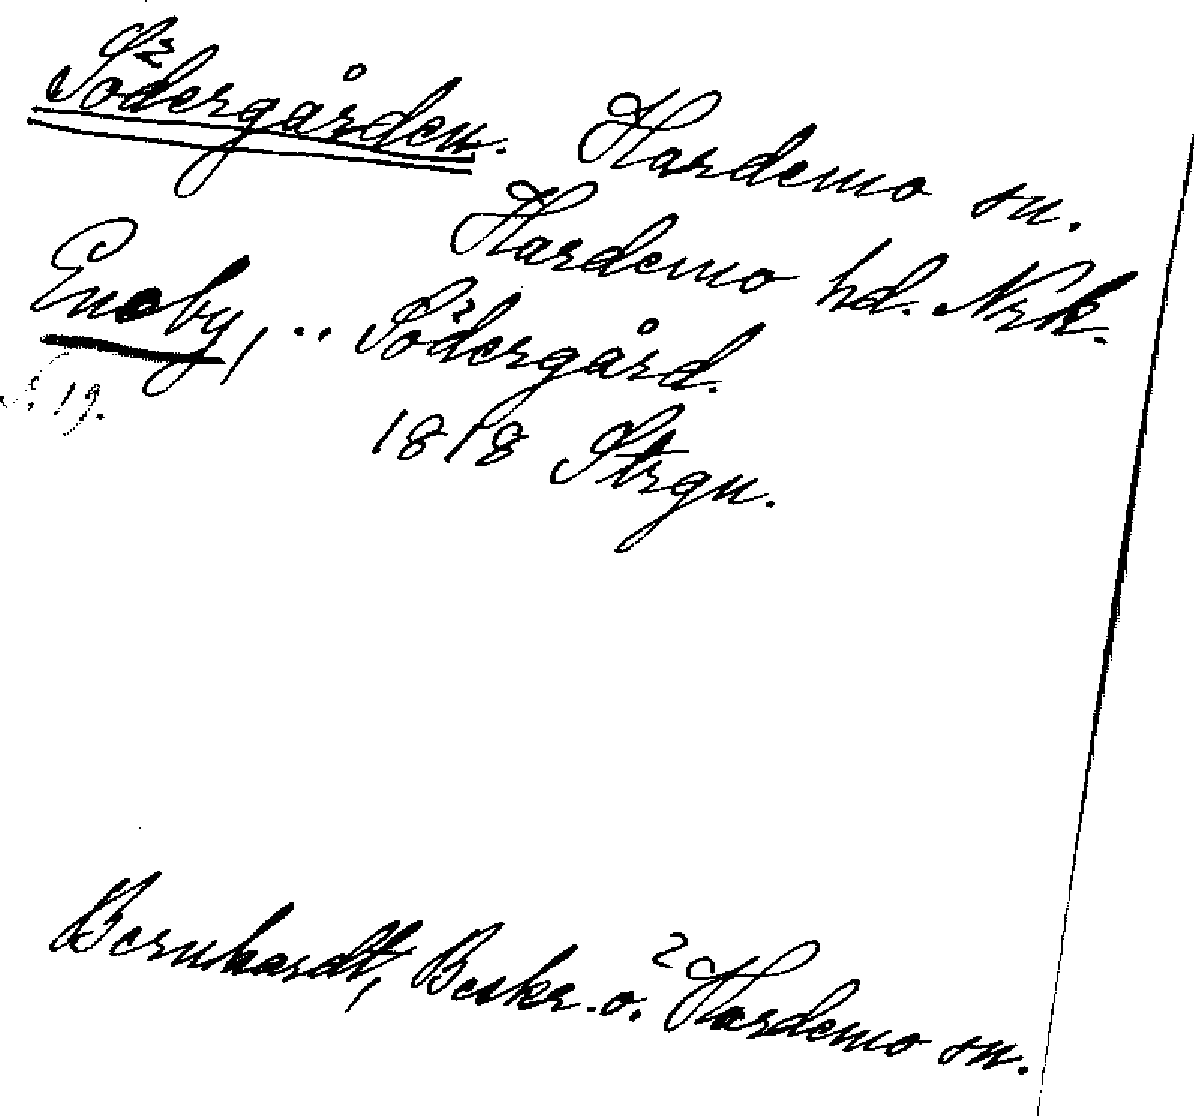 Södergården. Hardemo sn.
Hardemo hd. Nrk.
Eneby, .. Södergård.
S. 19.
1818 Strgn.
Bernhardt, Beskr. ö. Hardemo sn.